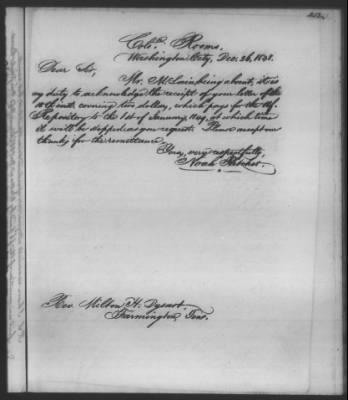 Colo. Rooms.
Washington City, Dec. 26, 1848.
Dear Sir,
Mr. McLain being absent, it is
my duty to acknowledge the receipt of your letter of the
inst. covering two dollars, which pays for the Af.
Repository to the 1st of January, 1849, at which time
it will be stopped as you request. Please accept our
thanks for the remittance.
Yours, very respectfully,
Noah Fletcher.
Rev. Milton H. Dysart,
Farmington, Tenn.